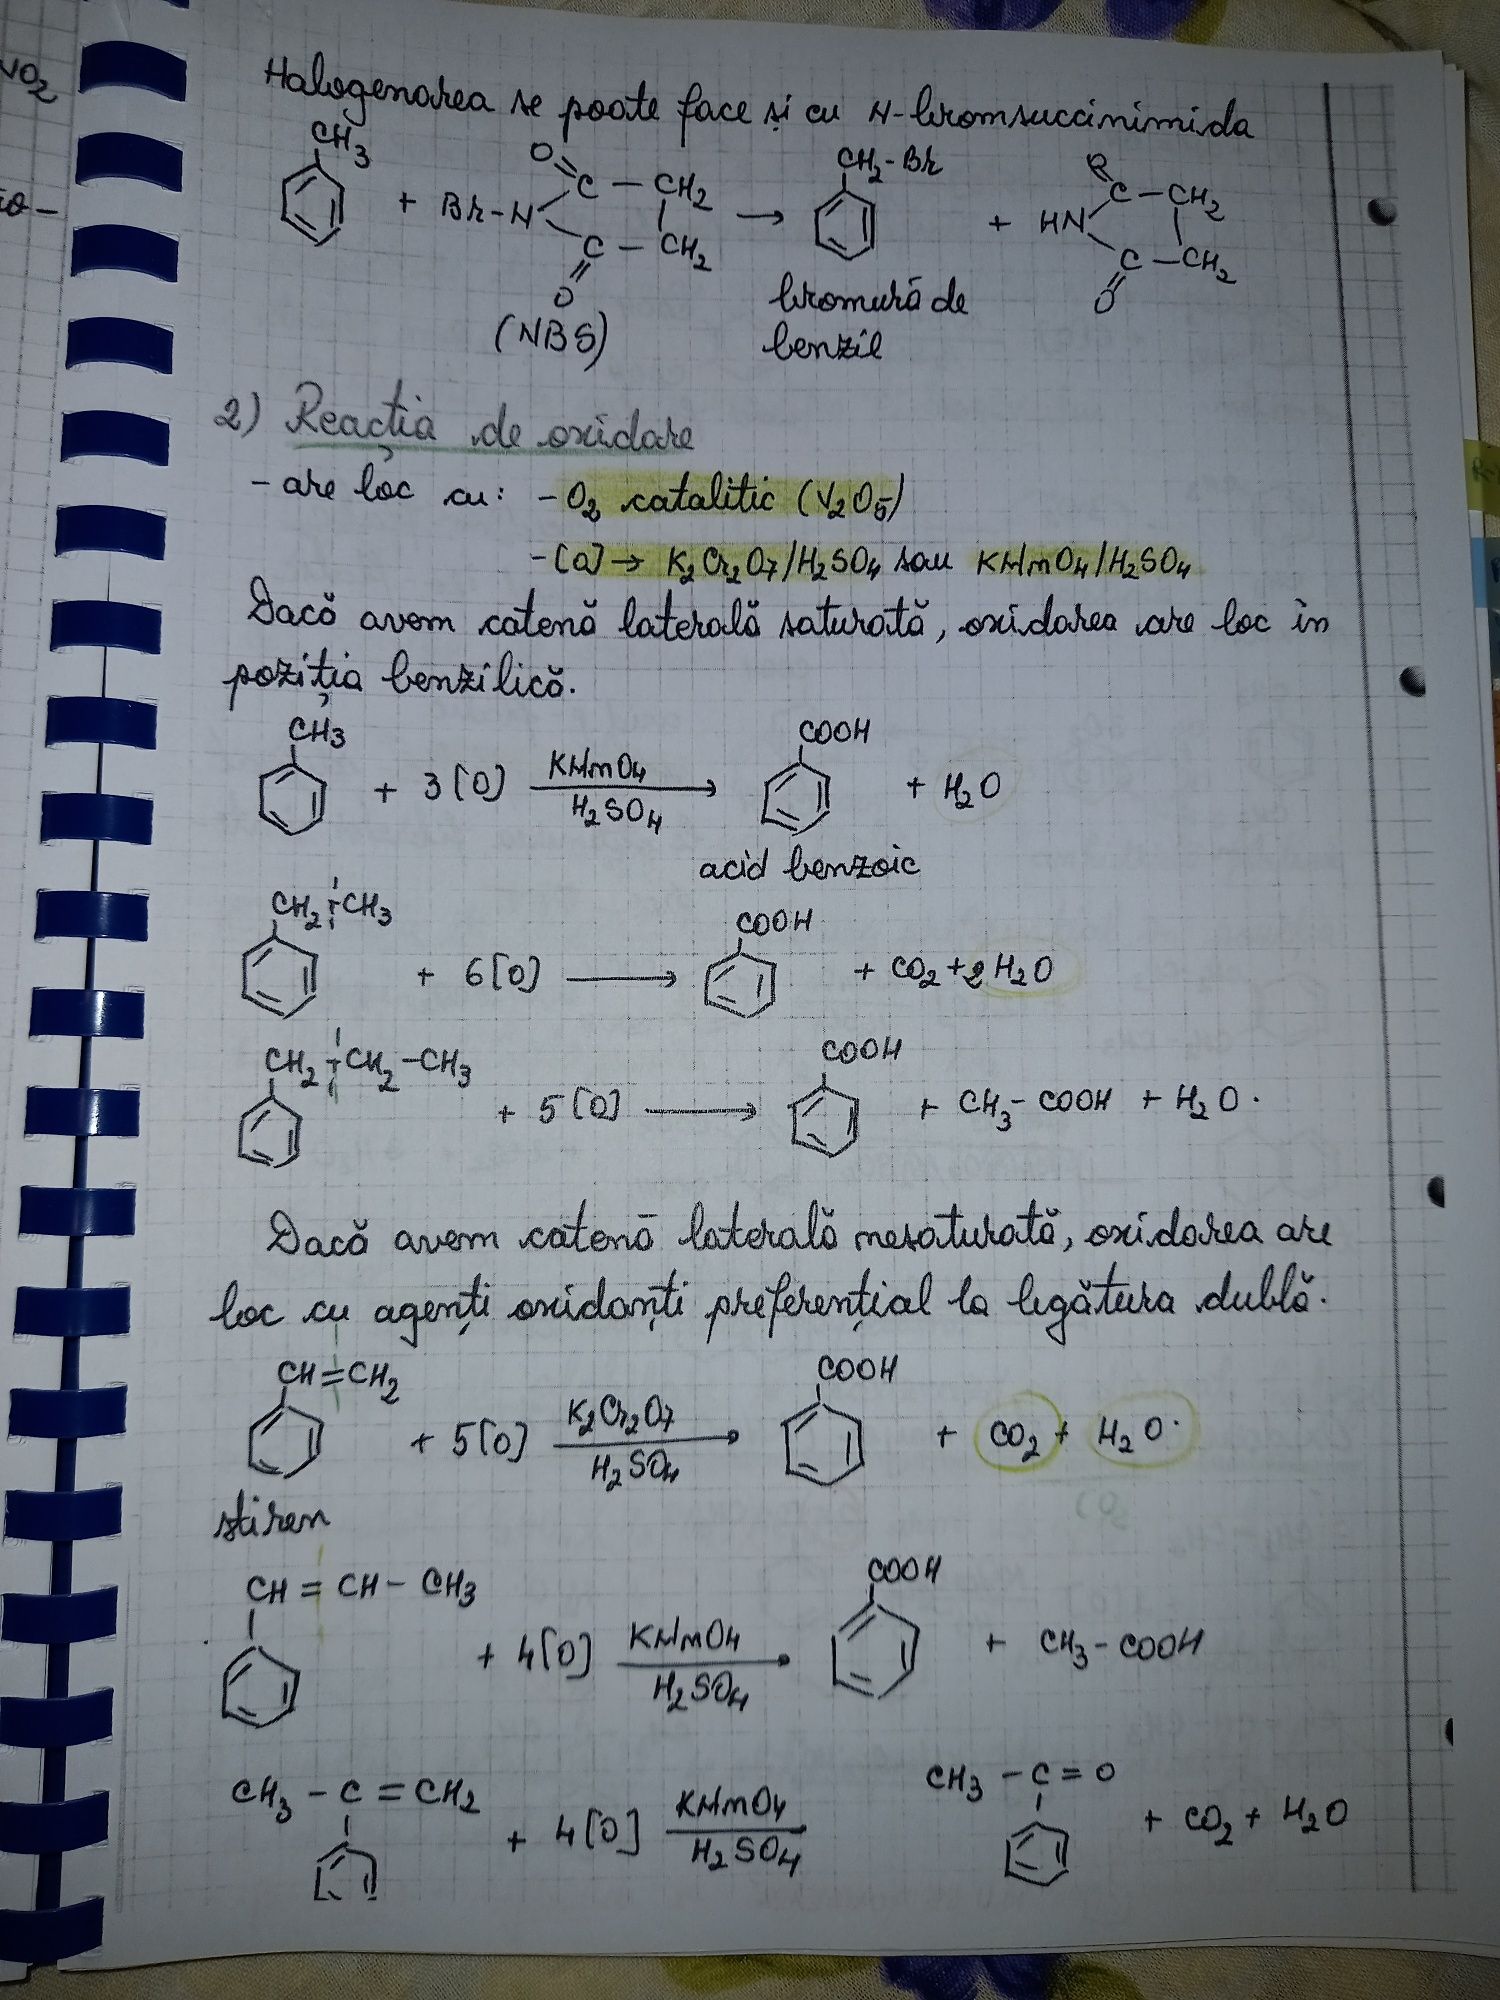 NO2
Halogenarea se poate face și cu N-bromsuccinimida
CH3 + Br-N O=C-CH2 CH2-C=O → CH2-Br + HN O=C-CH2 CH2-C=O
(NBS)
bromură de
benzil
2) Reacția de oxidare
- are loc cu: - O2 catalitic (V2O5)
- [O] → K2Cr2O7/H2SO4 sau KMnO4/H2SO4
Dacă avem catenă laterală saturată, oxidarea are loc în
poziția benzilică.
CH3 + 3[O] KMnO4 / H2SO4 → COOH + H2O
acid benzoic
CH2-CH3 + 6[O] → COOH + CO2 + 2H2O
CH2-CH2-CH3 + 5[O] → COOH + CH3-COOH + H2O.
Dacă avem catenă laterală nesaturată, oxidarea are
loc cu agenți oxidanți preferențial la legătura dublă.
CH=CH2 + 5[O] K2Cr2O7 / H2SO4 → COOH + CO2 + H2O.
stiren
CH=CH-CH3 + 4[O] KMnO4 / H2SO4 → COOH + CH3-COOH
CH3-C=CH2 + 4[O] KMnO4 / H2SO4 CH3-C=O + CO2 + H2O